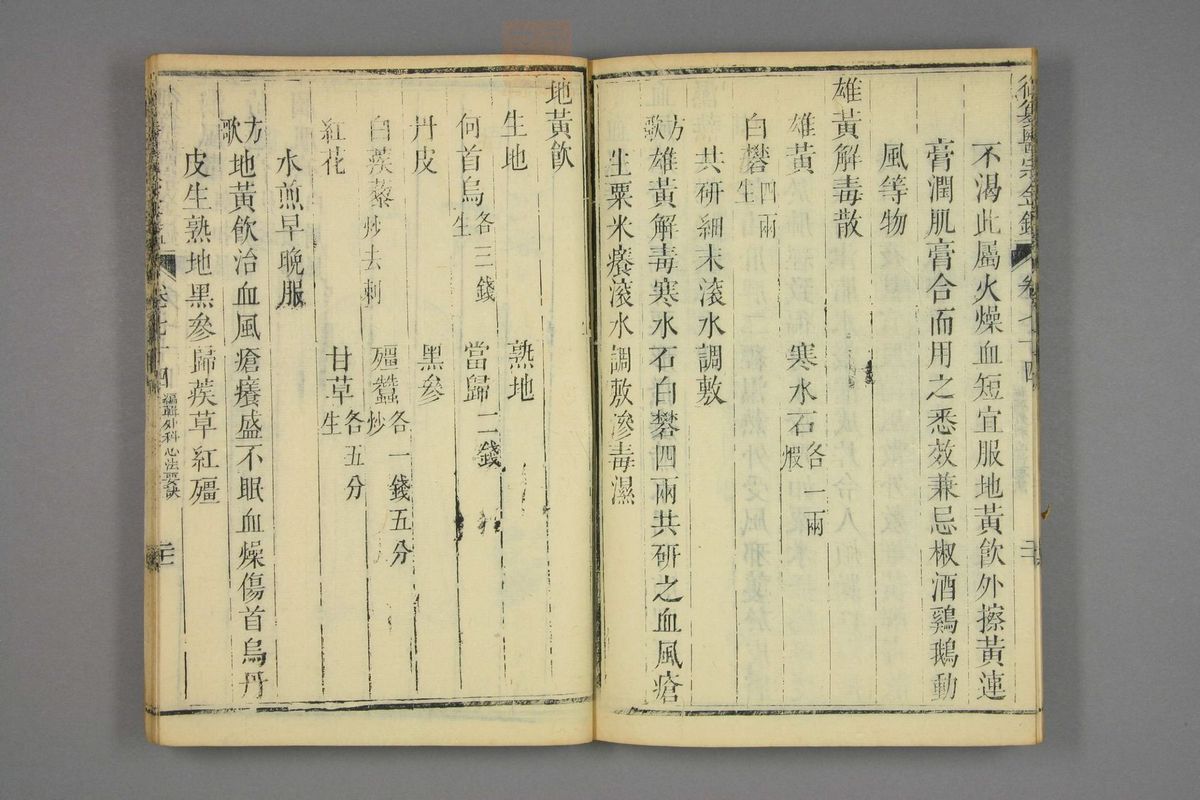 御纂醫宗金鑑 卷七十四
不渴此屬火燥血短宜服地黃飲外擦黃連
膏潤肌膏合而用之悉效兼忌椒酒鷄鵝動
風等物
雄黃解毒散
雄黃 寒水石煆各一兩
白礬生四兩
共研細末滚水調敷
方歌 雄黃解毒寒水石白礬四兩共研之血風瘡
生粟米癢滚水調敷滲毒濕
地黃飲
生地 熟地
何首烏生各三錢 當歸二錢
丹皮 黑參
白蒺藜炒去刺 殭蠶炒各一錢五分
紅花 甘草生各五分
水煎早晚服
方歌 地黃飲治血風瘡癢盛不眠血燥傷首烏丹
皮生熟地黑參歸蒺草紅殭
卷七十四 編輯外科心法要訣